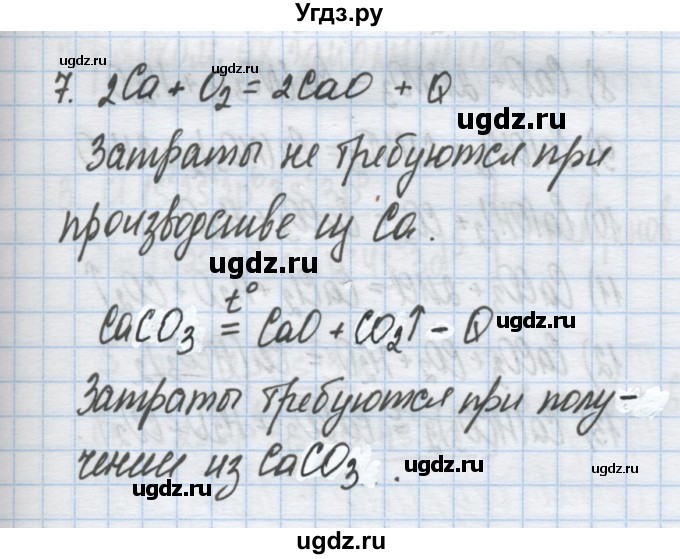 Угдз.ру
7. 2Ca + O₂ = 2CaO + Q
ugdz.ru ugdz.ru
ugdz.ru
Затраты не требуются при
производстве из Ca.
ugdz.ru
CaCO₃ =t° CaO + CO₂↑ - Q
ugdz.ru ugdz.ru
Затраты требуются при полу-
чении из CaCO₃.
ugdz.ru ugdz.ru
ugdz.ru